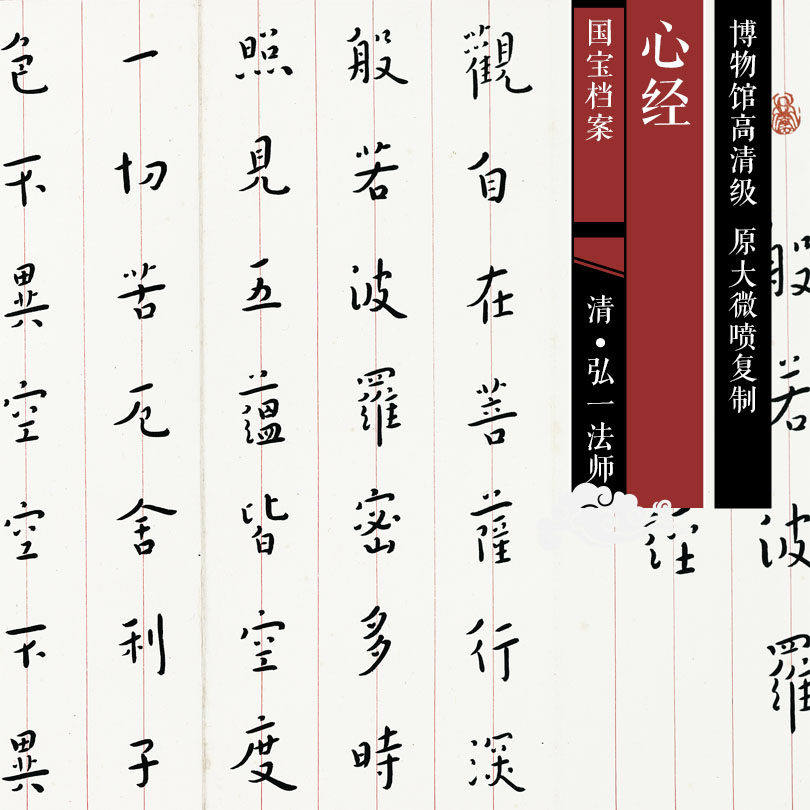 博物馆高清级 原大微喷复制
心经
国宝档案
清·弘一法师
般若波羅
經
觀自在菩薩行深
般若波羅密多時
照見五蘊皆空度
一切苦厄舍利子
色不異空空不異